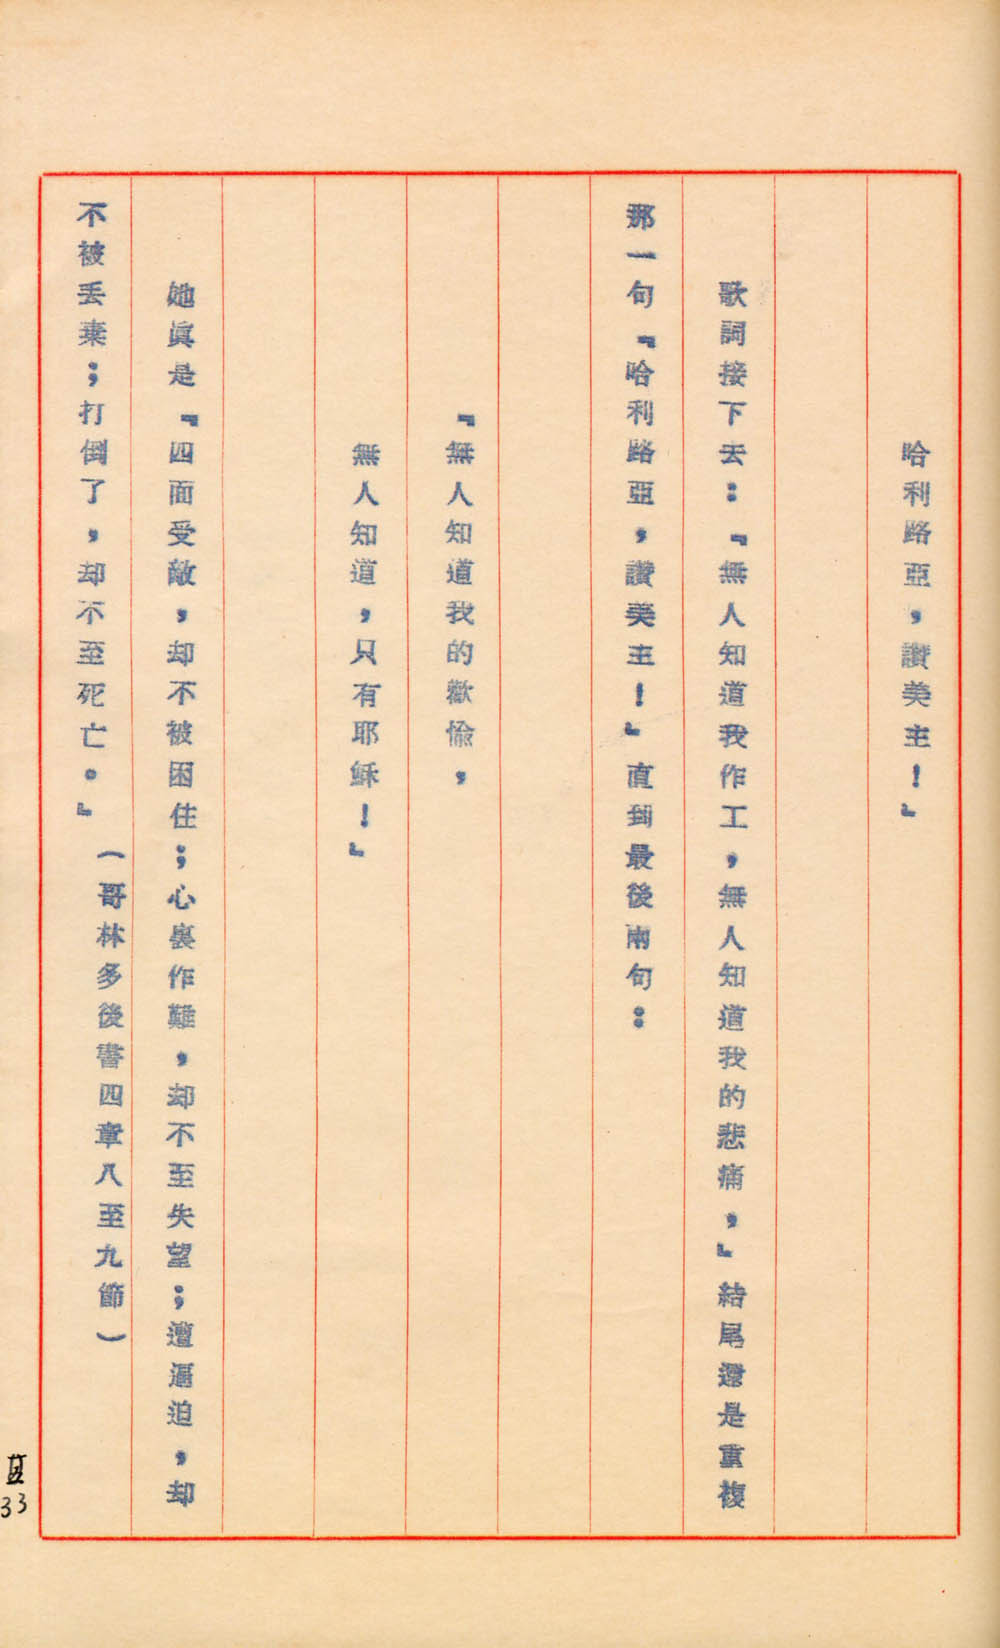 哈利路亞，讚美主！』
歌詞接下去：『無人知道我作工，無人知道我的悲痛，』結尾還是重複
那一句『哈利路亞，讚美主！』直到最後兩句：
『無人知道我的歡愉，
無人知道，只有耶穌！』
她眞是『四面受敵，却不被困住；心裏作難，却不至失望；遭逼迫，却
不被丟棄；打倒了，却不至死亡。』（哥林多後書四章八至九節）
33